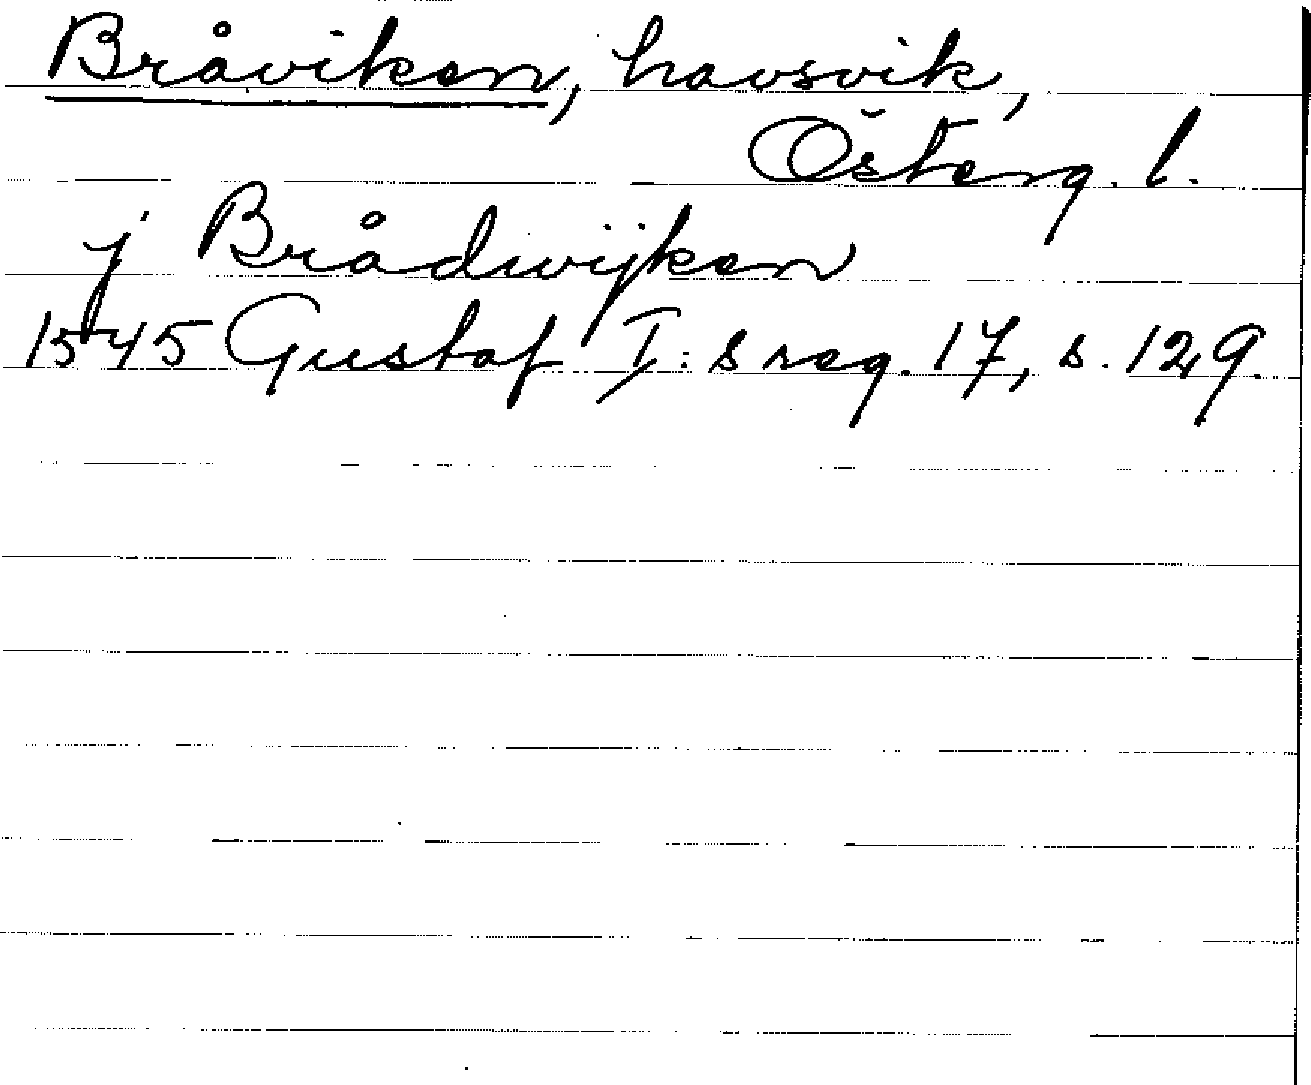 Bråviken, havsvik,
Österg. l.
j Brådwijken
1545 Gustaf I:s reg. 17, s. 129.